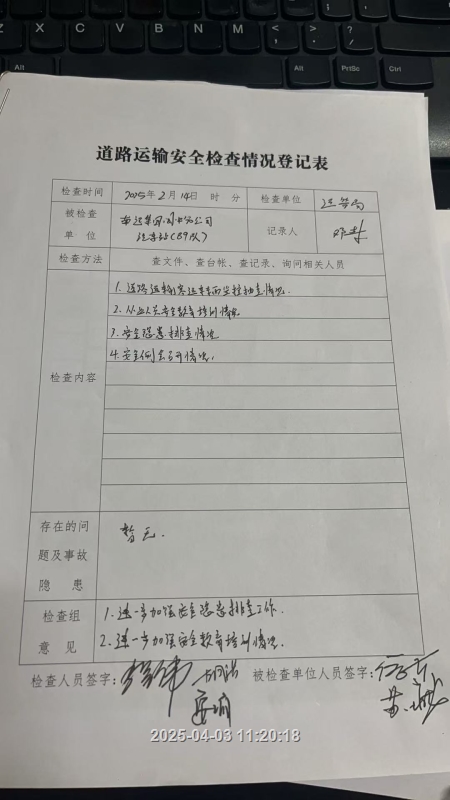 Alt
Alt
PrtSc
Ctrl
道路运输安全检查情况登记表
检查时间 2025年2月14日 时 分 检查单位 运管局
被检查
单位 公司
记录人
检查方法 查文件、查台帐、查记录、询问相关人员
检查内容
1.道路运输客运车辆安排抽查情况.
2.从业人员安全教育培训情况
3.安全隐患排查情况
4.安全例会召开情况.
存在的问
题及事故
隐患
暂无.
检查组
意见
1.进一步加强安全隐患排查工作.
2.进一步加强安全教育培训情况.
检查人员签字: 被检查单位人员签字:
2025-04-03 11:20:18